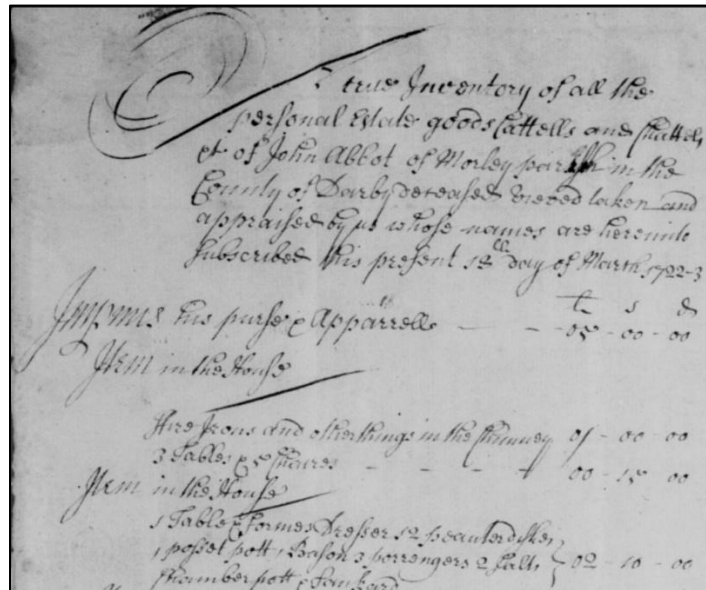 A true Inventory of all the
personal Estate goods Cattells and Chattels
et of John Abbot of Morley parish in the
County of Darby deceased vieved taken and
appraised by us whose names are hereunto
subscribed this present 12th day of March 1722-3
£ s d
Imprimis his purse & Apparrell - - 05 - 00 - 00
Item in the House
Fire Irons and other things in the Chimney 01 - 00 - 00
3 Tables & 5 Chaires - - - - 00 - 15 - 00
Item in the House
1 Table & Formes Dresser 12 peauter dishes
1 posset pott 1 Bason 3 porrengers 2 Salts } 02 - 10 - 00
Chamber pott & Tankard